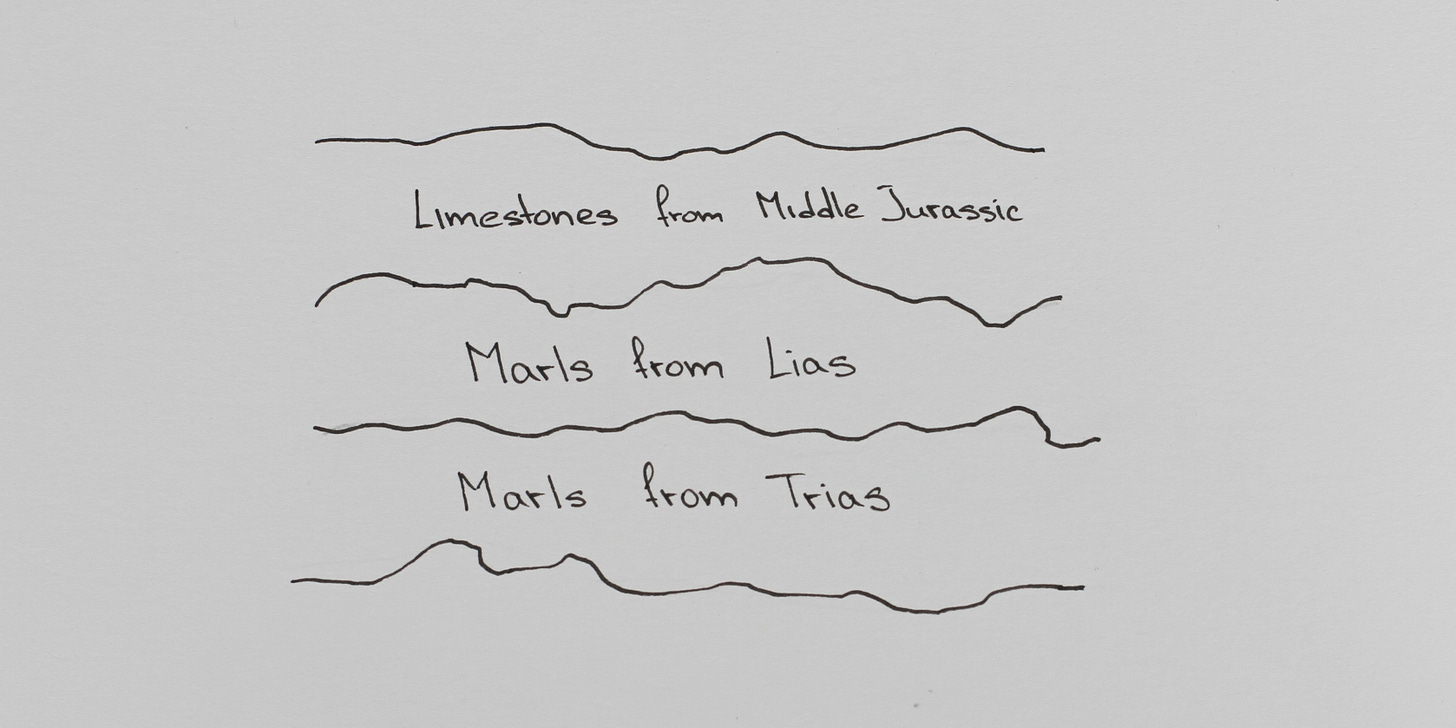 Limestones from Middle Jurassic
Marls from Lias
Marls from Trias